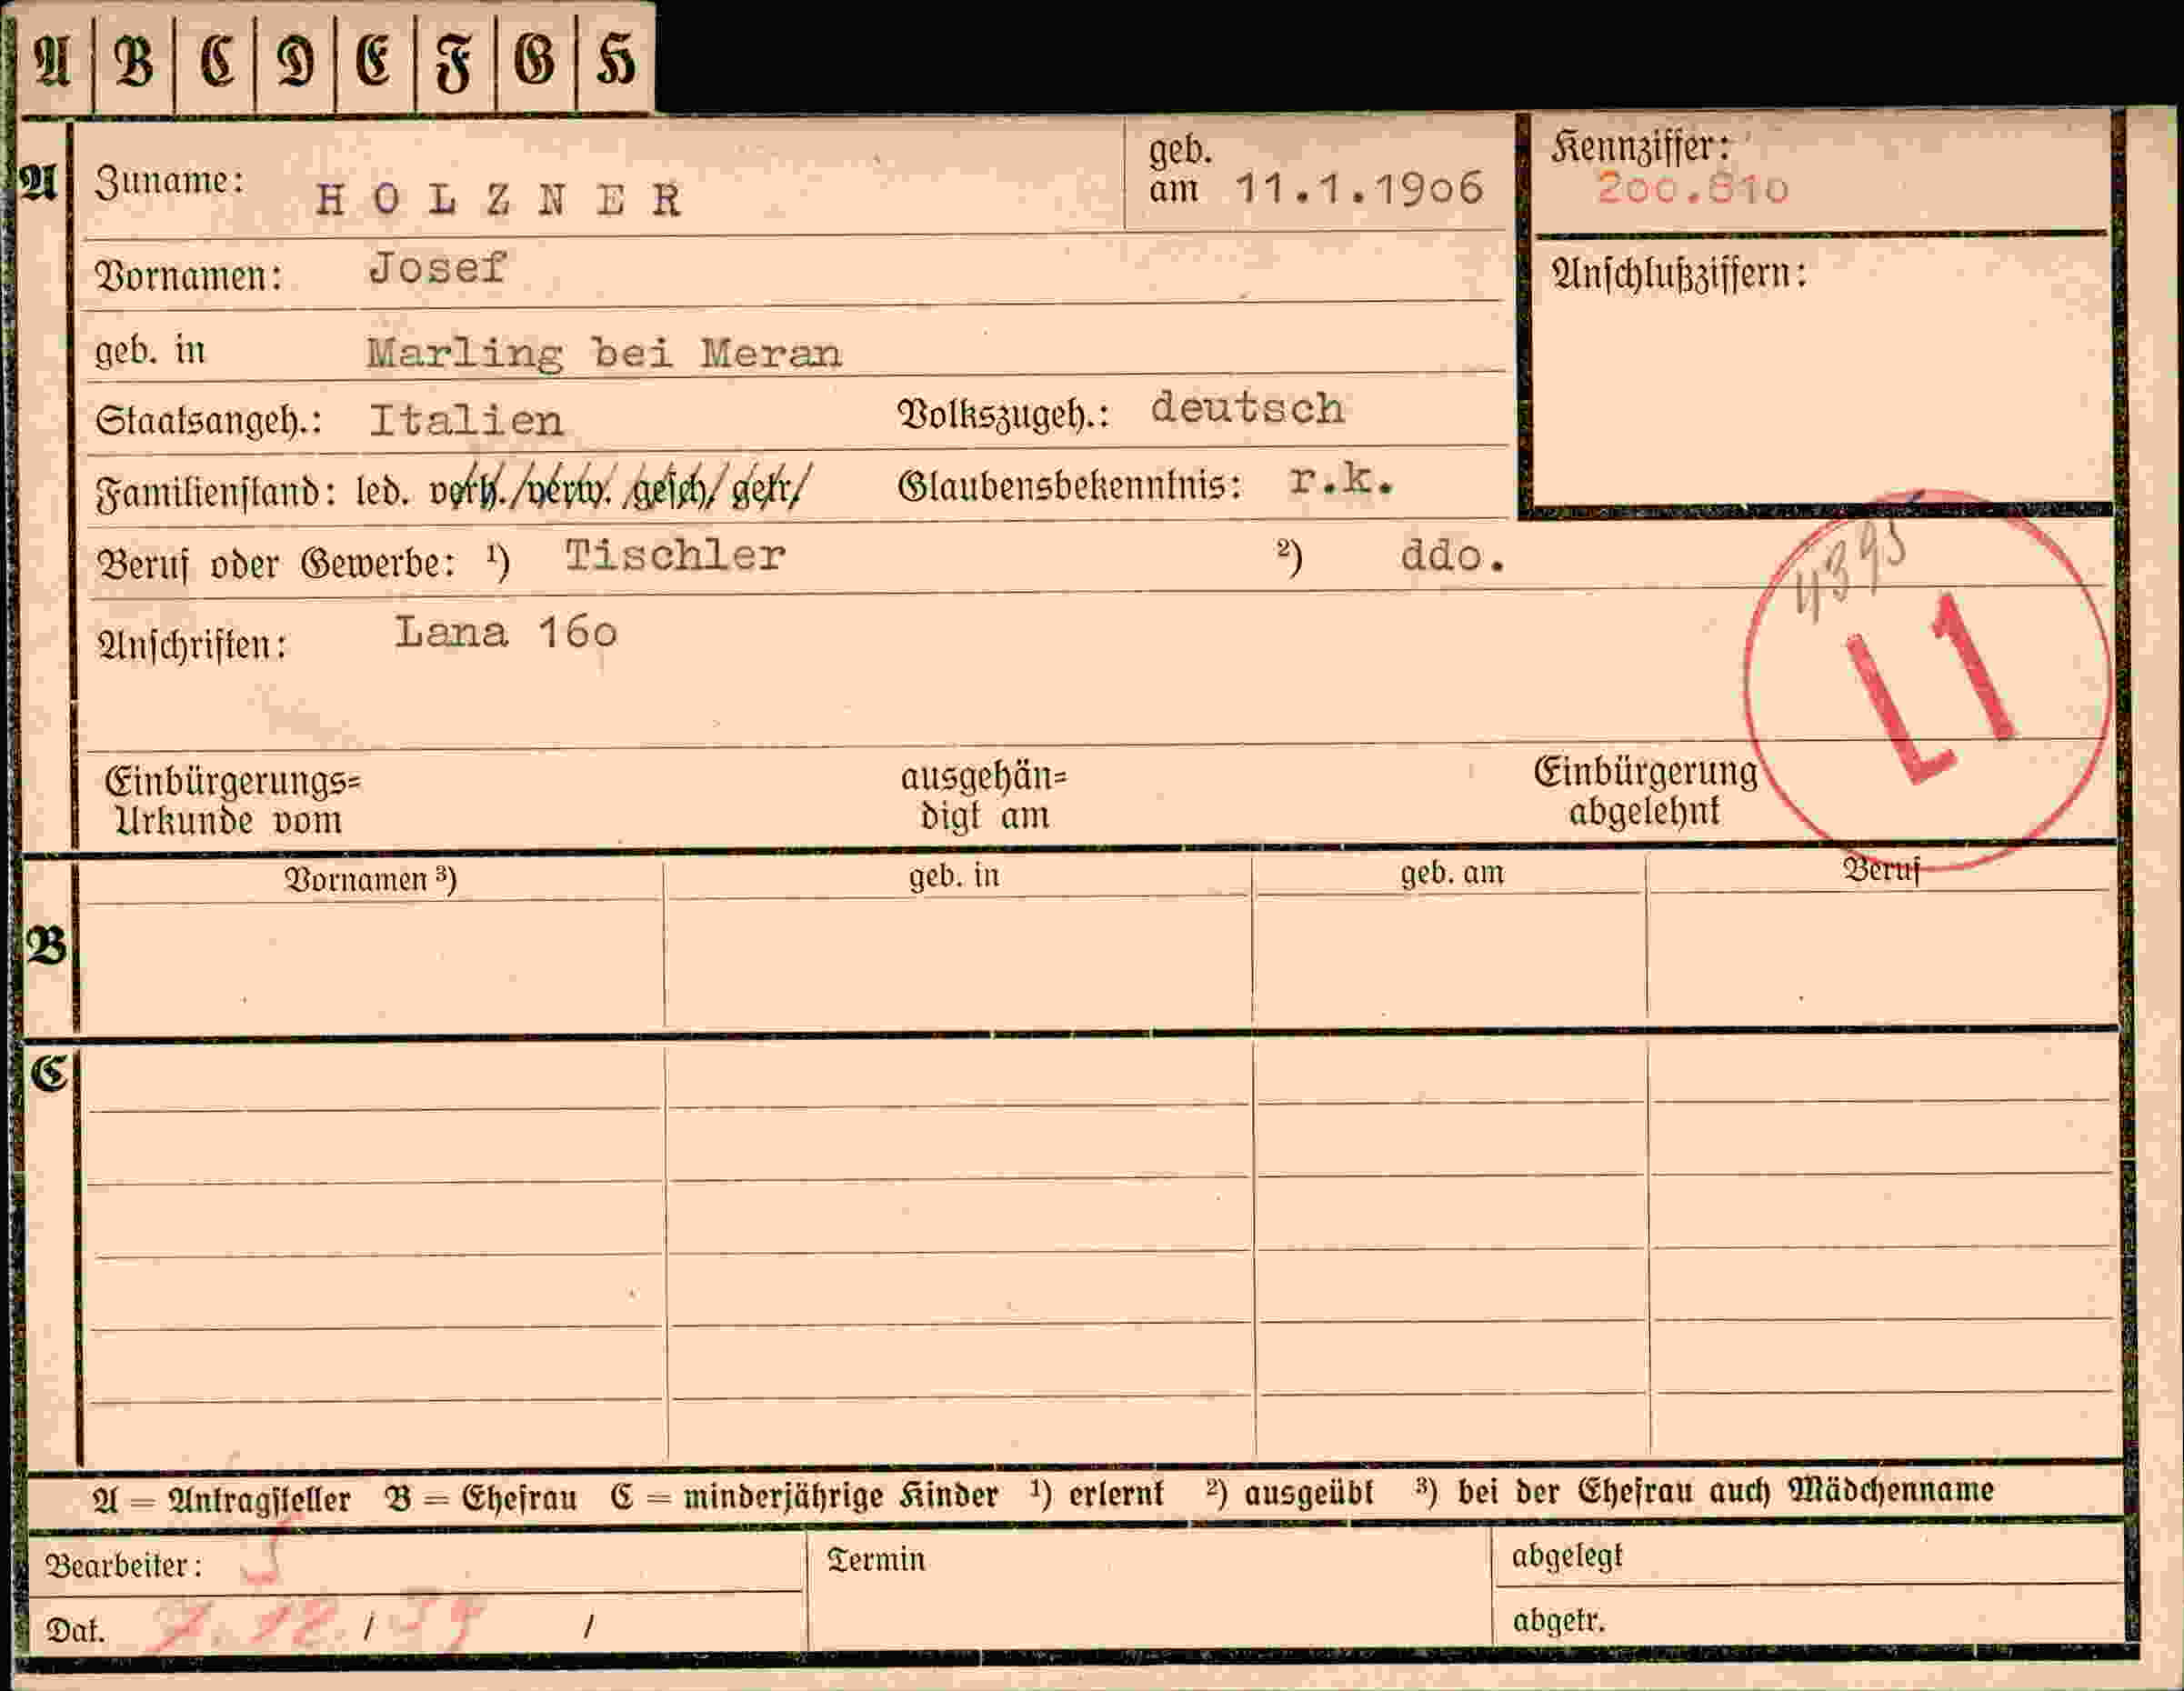 A B C D E F G H
A Zuname: HOLZNER geb. am 11.1.19o6 Kennziffer: 2oo.81o
Vornamen: Josef Anschlußziffern:
geb. in Marling bei Meran
Staatsangeh.: Italien Volkszugeh.: deutsch
Familienstand: led. verh./verw./gesch/getr/ Glaubensbekenntnis: r.k.
Beruf oder Gewerbe: ¹) Tischler ²) ddo.
4395
Anschriften: Lana 16o
L1
Einbürgerungs= ausgehän= Einbürgerung
Urkunde vom digt am abgelehnt
Vornamen ³) geb. in geb. am Beruf
B
C
A = Antragsteller B = Ehefrau C = minderjährige Kinder ¹) erlernt ²) ausgeübt ³) bei der Ehefrau auch Mädchenname
Bearbeiter: Termin abgelegt
Dat. 12 / 39 / abgetr.